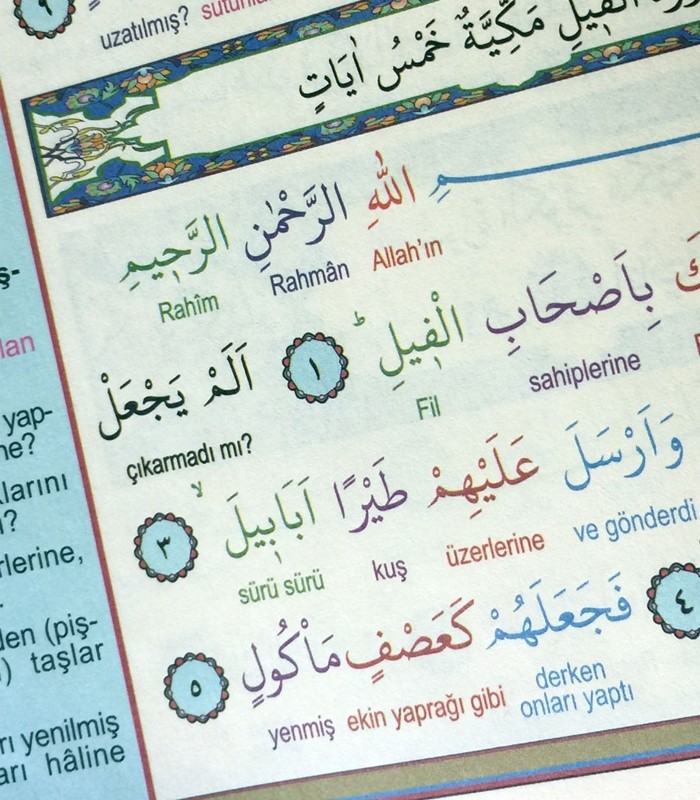 ٩
uzatılmış?
الفيل مكية خمس اٰيات
مِ اللّٰهِ الرَّحْمٰنِ الرَّحٖيمِ
Allah'ın Rahmân Rahîm
بِاَصْحَابِ الْفٖيلِ ١ اَلَمْ يَجْعَلْ
sahiplerine Fil çıkarmadı mı?
وَاَرْسَلَ عَلَيْهِمْ طَيْرًا اَبَابٖيلَ ٣
ve gönderdi üzerlerine kuş sürü sürü
٤ فَجَعَلَهُمْ كَعَصْفٍ مَاْكُولٍ ٥
derken onları yaptı ekin yaprağı gibi yenmiş
yap-
den (piş-
taşlar
yenilmiş
hâline